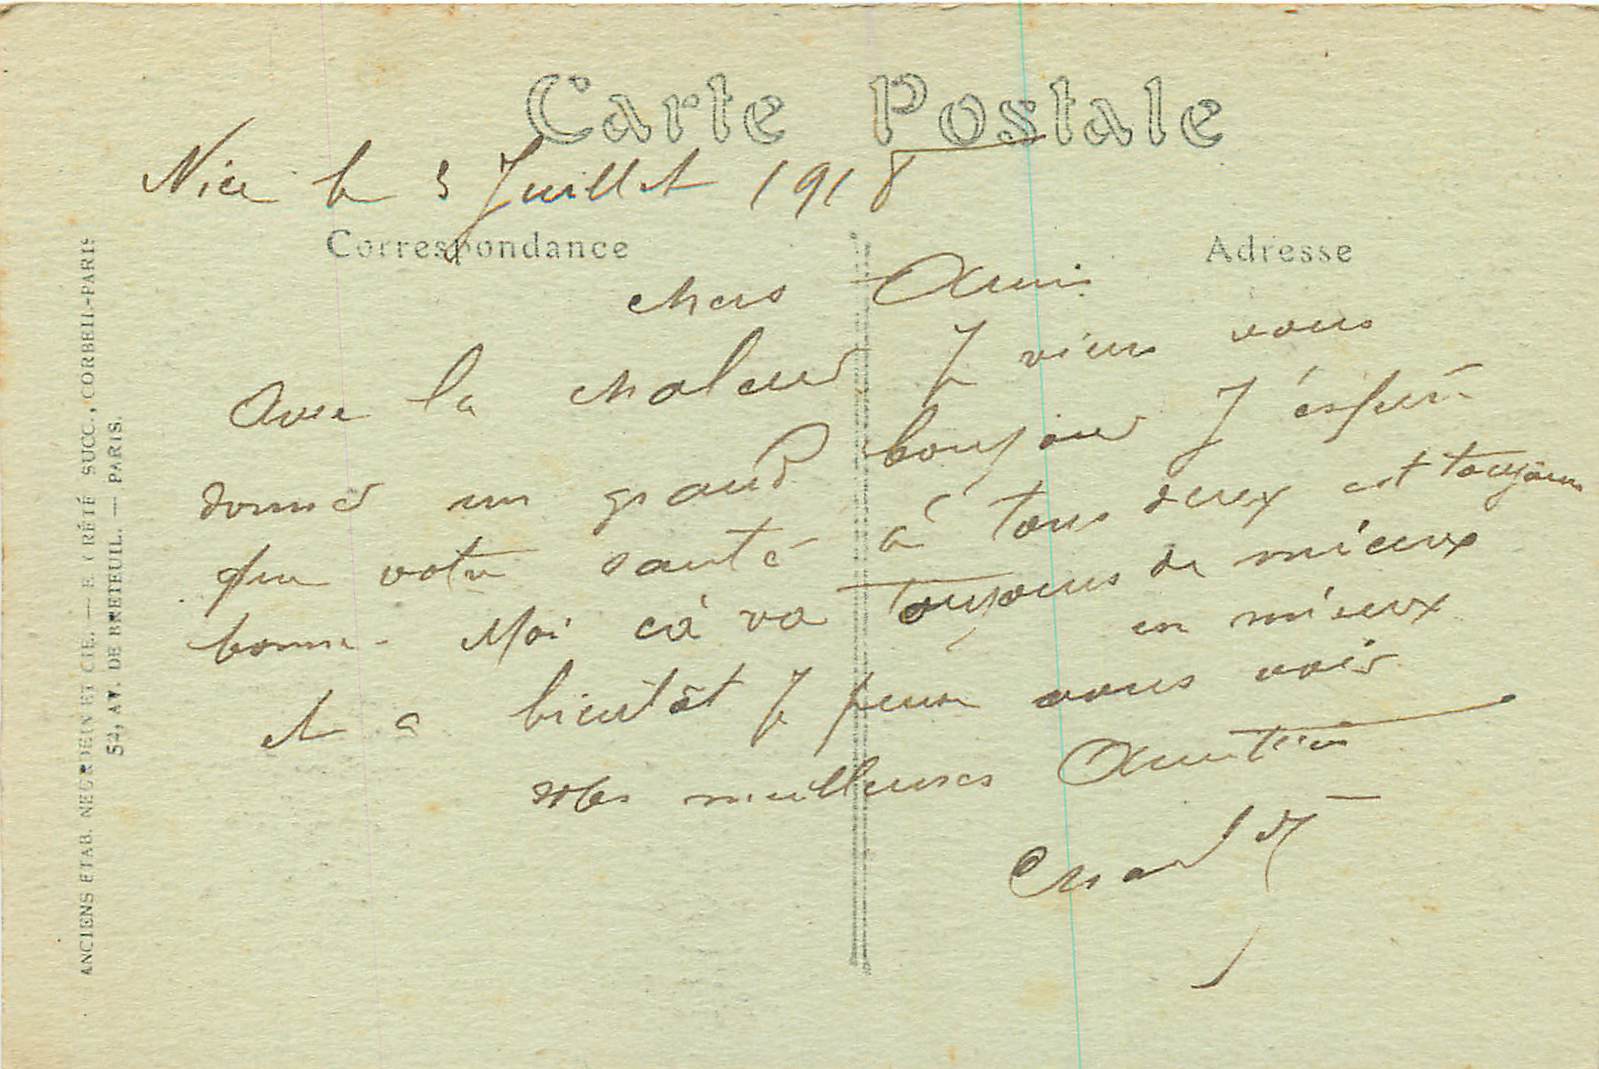 Carte Postale
Nice le 3 Juillet 1918
Correspondance
Adresse
chers Amis
Avec la chaleur J viens vous
donner un grand bonjour J éspère
que votre santé à tous deux est toujours
bonne - Moi cà va toujours de mieux
en mieux
et a bientôt J pense vous voir
mes meilleures Amitiés
ANCIENS ETAB. NEURDEIN ET CIE. — E. CRÉTÉ SUCC., CORBEIL-PARIS
52, AV. DE BRETEUIL. — PARIS.